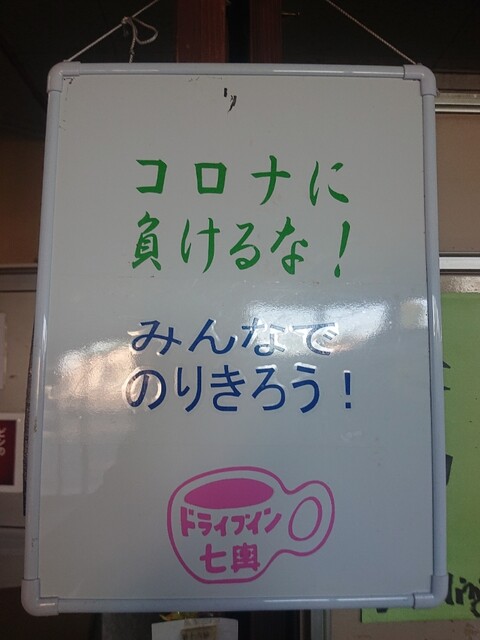 コロナに
負けるな！
みんなで
のりきろう！
ドライブイン
七輿